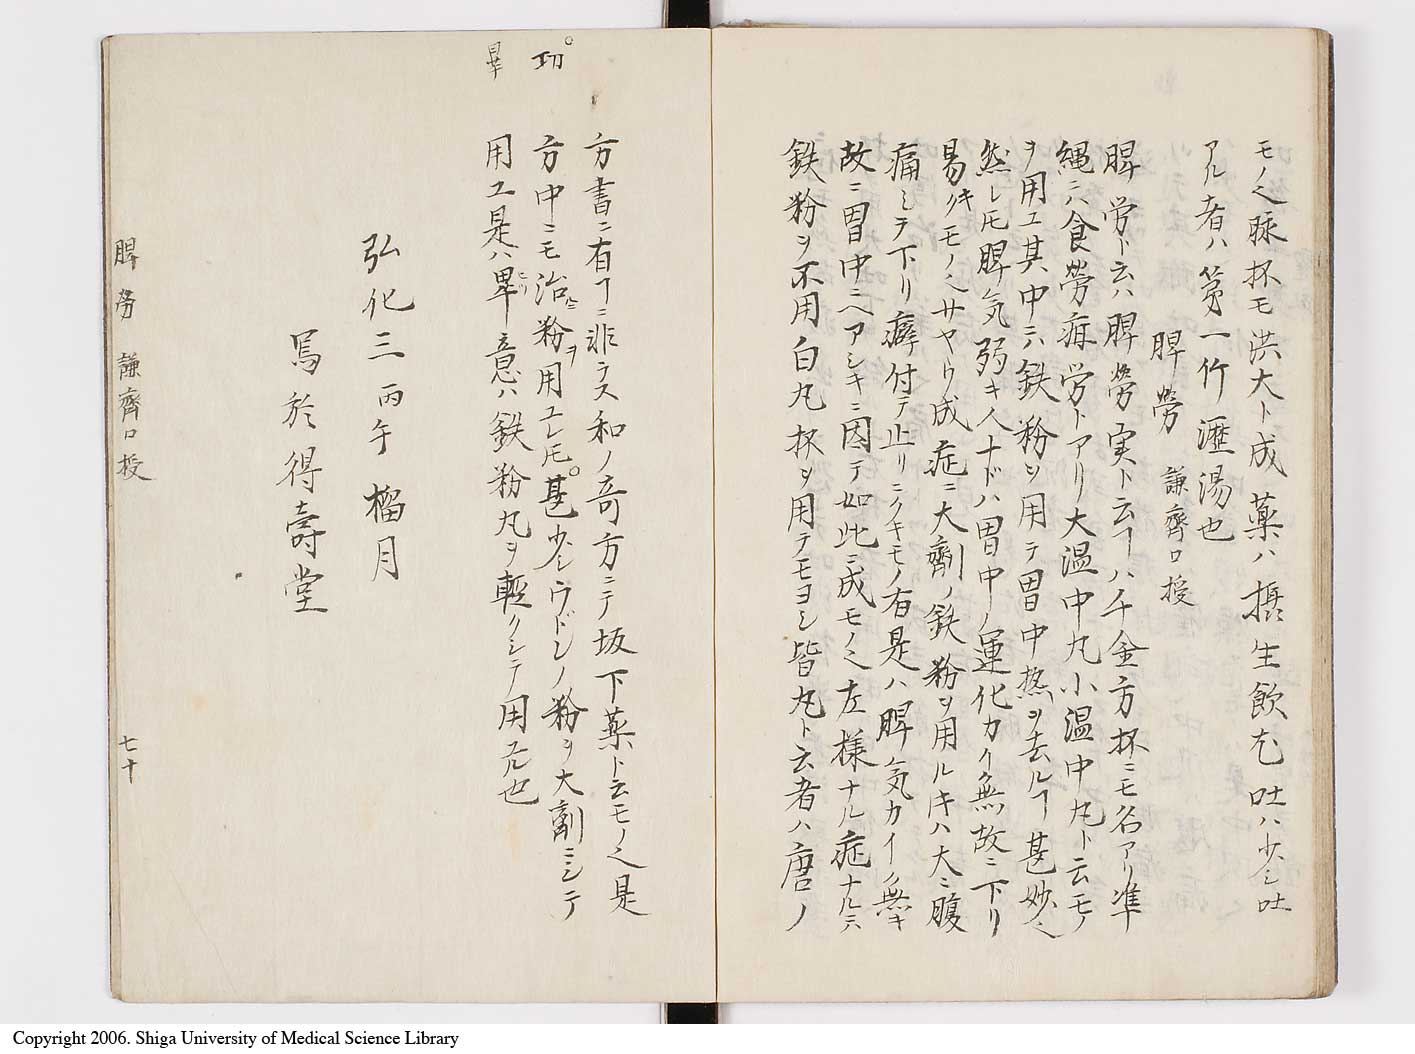 モノ也脉抔モ洪大ト成薬ハ摂生飲尤吐ハ少シ吐
アル者ハ第一竹瀝湯也
脾労 謙齊口授
脾労ト云ハ脾労実ト云ヿハ千金方抔ニモ名アリ準
縄ニハ食労疳労トアリ大温中丸小温中丸ト云モノ
ヲ用エ其中ニハ鉄粉ヲ用テ胃中熱ヲ去ルヿ甚妙也
然レ𪜈脾気弱キ人ナドハ胃中ノ運化カイ無故ニ下リ
易クキモノ也サヤウ成症ニ大劑ノ鉄粉ヲ用ルキハ大ニ腹
痛シテ下リ癖付テ止リニクキモノ有是ハ脾気カイノ無キ
故ニ胃中ニヘアシキニ因テ如此ニ成モノ也左様ナル症ナルニハ
鉄粉ヲ不用白丸抔ヲ用テモヨシ皆丸ト云者ハ唐ノ
方書ニ有ヿニ非ラス和ノ奇方ニテ坂下薬ト云モノ也是
方中ニモ冶粉ヲ用エレ𪜈甚少シウドンノ粉ヲ大劑ニシテ
用エ是ハ畢意ハ鉄粉丸ヲ軽クシテ用尤也
功
畢
弘化三丙午榴月
写於得壽堂
脾労 謙齊口授 七十
Copyright 2006. Shiga University of Medical Science Library